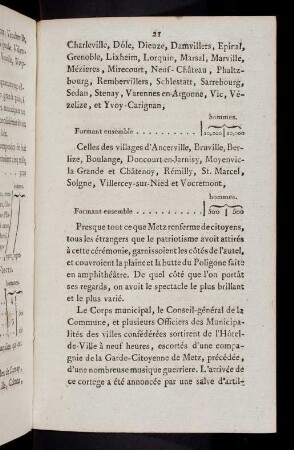 21
Charleville, Dôle, Dieuze, Damvillers, Epinal,
Grenoble, Lixheim, Lorquin, Marsal, Marville,
Mézieres, Mirecourt, Neuf-Château, Phaltz-
bourg, Rembervillers, Schlestatt, Sarrebourg,
Sedan, Stenay, Varennes en-Argonne, Vic, Vé-
zelize, et Yvoy-Carignan,
hommes.
Formant ensemble . . . . . . . . . . 10,000 10,000
Celles des villages d'Ancerville, Bruville, Ber-
lize, Boulange, Doncourt en-Jarnisy, Moyenvic-
la Grande et Châtenoy, Rémilly, St. Marcel,
Solgne, Villercey-sur-Nied et Vocremont,
hommes.
Formant ensemble . . . . . . . . . . 500 500
Presque tout ce que Metz renferme de citoyens,
tous les étrangers que le patriotisme avoit attirés
à cette cérémonie, garnissoient les côtés de l'autel,
et couvroient la plaine et la butte du Poligone faite
en amphithéâtre. De quel côté que l'on portât
ses regards, on avoit le spectacle le plus brillant
et le plus varié.
Le Corps municipal, le Conseil-général de la
Commune, et plusieurs Officiers des Municipa-
lités des villes confédérées sortirent de l'Hôtel-
de-Ville à neuf heures, escortés d'une compa-
gnie de la Garde-Citoyenne de Metz, précédée,
d'une nombreuse musique guerriere. L'arrivée de
ce cortege a été annoncée par une salve d'artil-